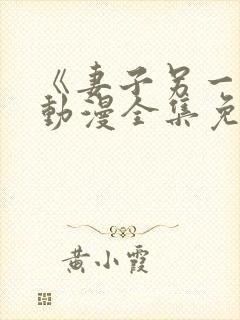 《妻子另一
動漫全集免
黄小霞